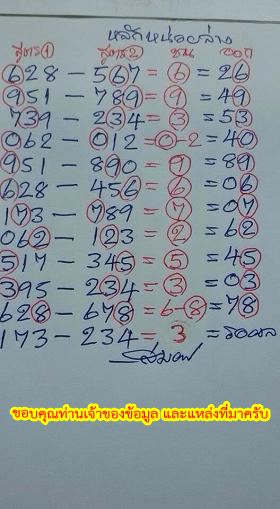 หลักหน่วยล่าง
สูตร(1) สูตร2) ชน ออก
628 - 567 = 6 = 26
951 - 789 = 9 = 49
739 - 234 = 3 = 53
062 - 012 = 0-2 = 40
951 - 890 = 9 = 89
628 - 456 = 6 = 06
173 - 789 = 7 = 07
062 - 123 = 2 = 62
517 - 345 = 5 = 45
395 - 234 = 3 = 03
628 - 678 = 6-8 = 78
173 - 234 = 3 = รอผล
ขอบคุณท่านเจ้าของข้อมูล และแหล่งที่มาครับ